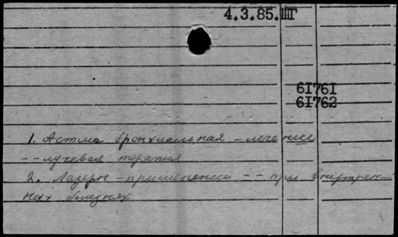 4.3.85.ШГ
61761
61762
1. Астма бронхиальная – лечение
-- лучевая терапия
2. Лазеры – применение -- при внутрен-
них болезнях